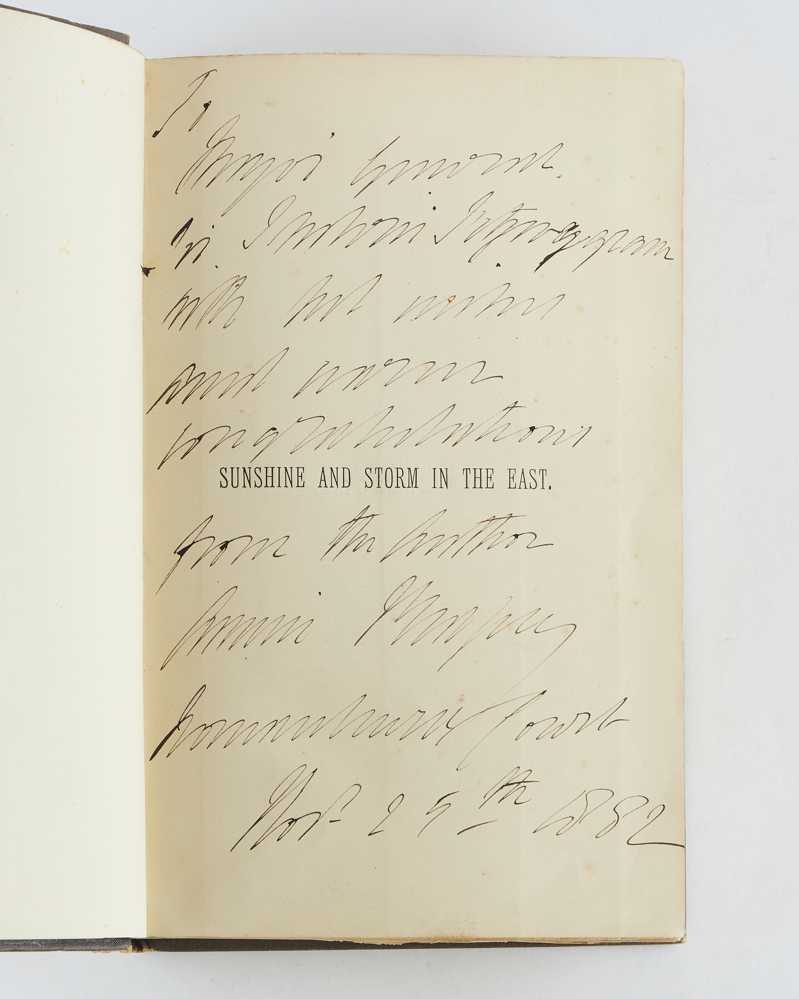 To
Major General
Sir Frederick Fitzwygram
with best wishes
and warm
congratulations
SUNSHINE AND STORM IN THE EAST.
from the Author
Annie Brassey
Normanhurst Court
Novr 25th 1882